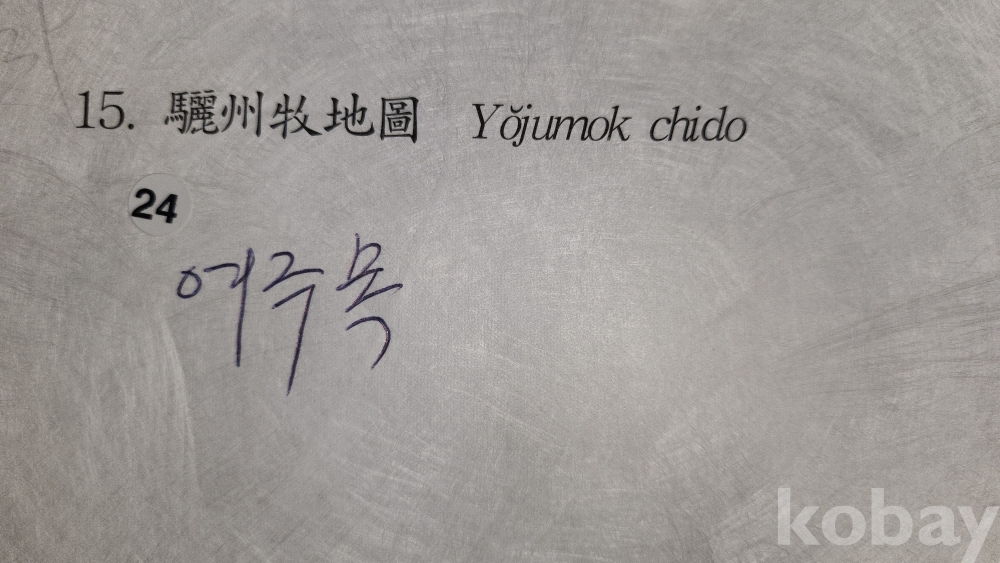 15. 驪州牧地圖 Yŏjumok chido
24
여주목
kobay